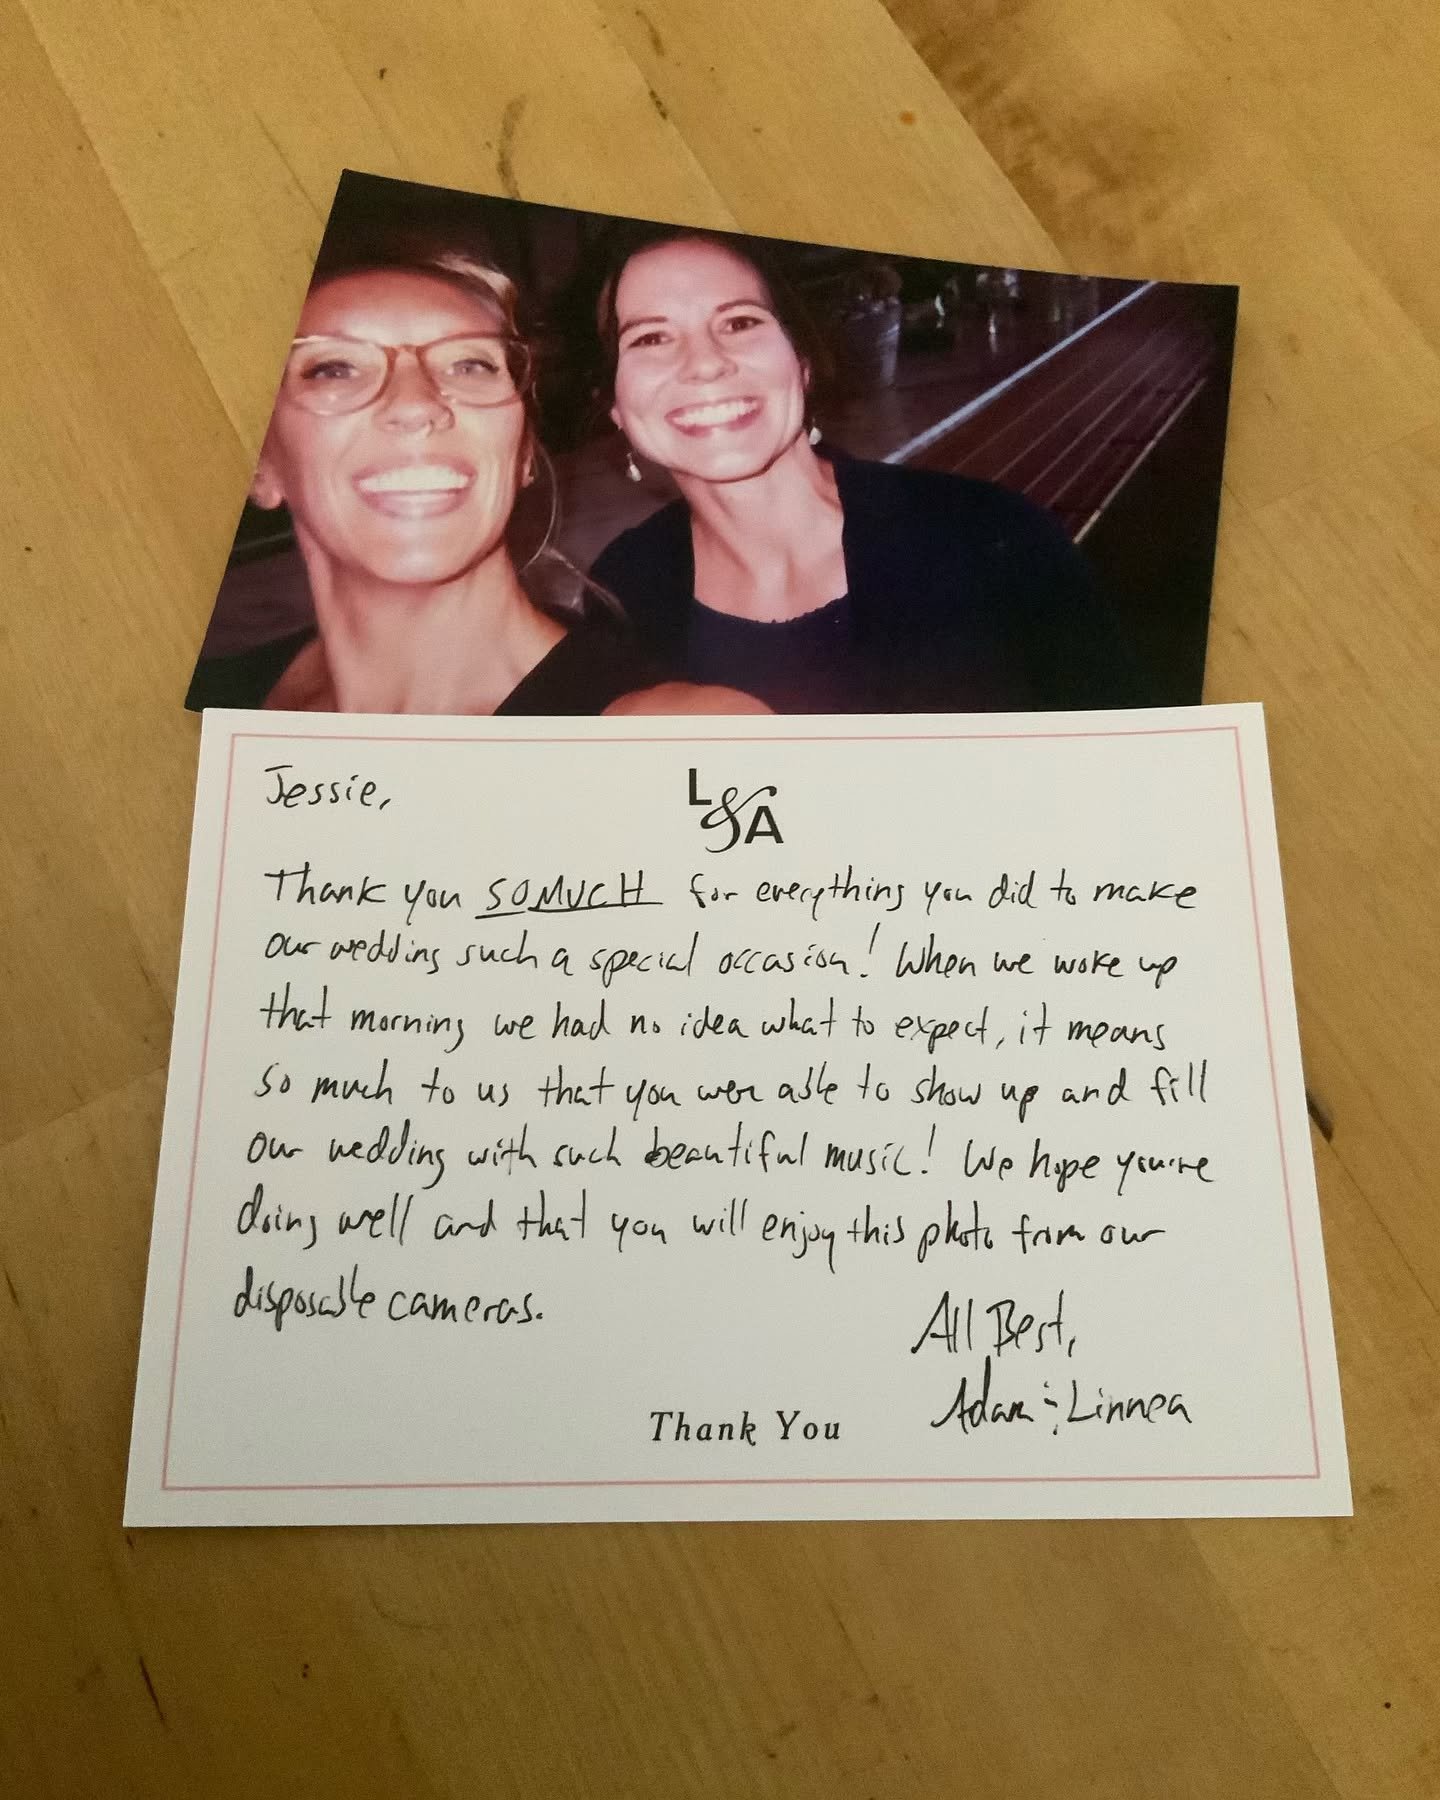 Jessie,
L&A
Thank you SO MUCH for everything you did to make
our wedding such a special occasion! When we woke up
that morning we had no idea what to expect, it means
so much to us that you were able to show up and fill
our wedding with such beautiful music! We hope you're
doing well and that you will enjoy this photo from our
disposable cameras.
All Best,
Adam & Linnea
Thank You